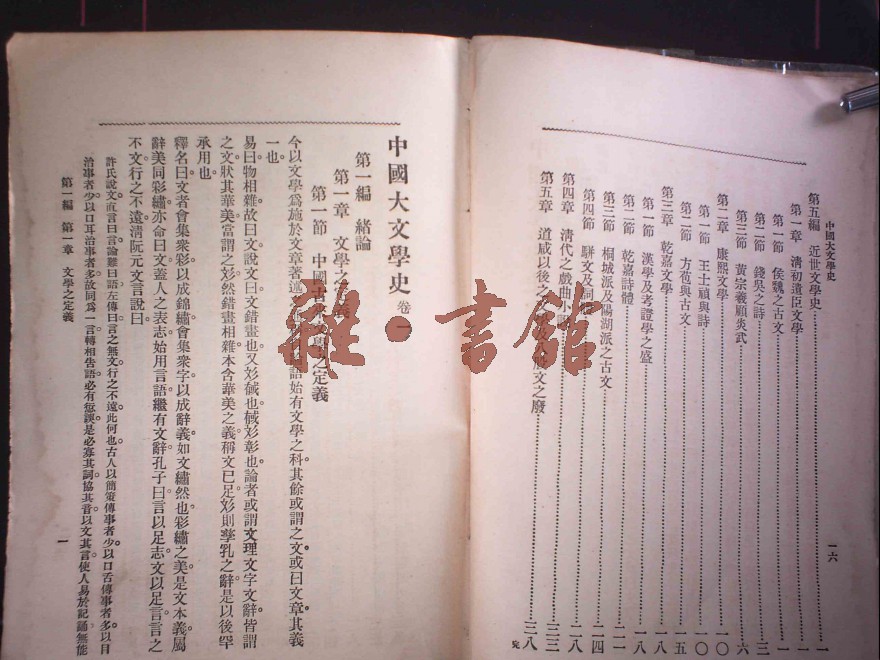 中國大文學史
一六
第五編 近世文學史……一
第一章 清初遺臣文學……一
第一節 侯魏之古文……一
第二節 錢吳之詩……三
第三節 黃宗羲顧炎武……六
第二章 康熙文學……一〇
第一節 王士禎與詩……一〇
第二節 方苞與古文……一五
第三章 乾嘉文學……一八
第一節 漢學及考證學之盛……一八
第二節 乾嘉詩體……二一
第三節 桐城派及陽湖派之古文……二四
第四節 駢文及詞體……二八
第四章 清代之戲曲小說……三三
第五章 道咸以後之文學及八股文之廢……三八
完
中國大文學史 卷一
第一編 緒論
第一章 文學之定義
第一節 中國古來文學之定義
今以文學爲施於文章著述之語始有文學之科。其餘或謂之文。或曰文章。其義
一也。
易曰物相雜故曰文。說文曰文錯畫也。又彣䬑也。䬑彣彰也。論者或謂文理文字文辭皆謂
之文。狀其華美當謂之彣。然錯畫相雜。本含華美之義。稱文已足。彣則孳乳之辭。是以後罕
承用也。
釋名曰文者會集衆彩以成錦繡。會集衆字以成辭義。如文繡然也。彩繡之美。是文本義。屬
辭美同彩繡。亦命曰文。蓋人之表志。始用言語。繼有文辭。孔子曰。言以足志。文以足言。言之
不文。行之不遠。清阮元文言說曰
許氏說文。直言曰言。論難曰語。左傳曰。言之無文。行之不遠。此何也。古人以簡策傳事者少。以口舌傳事者多。以目
治事者少。以口耳治事者多。故同爲一言。轉相告語。必有愆誤。是必寡其詞。協其音。以文其言。使人易於記誦。無能
第一編 第一章 文學之定義
一
雅·書館